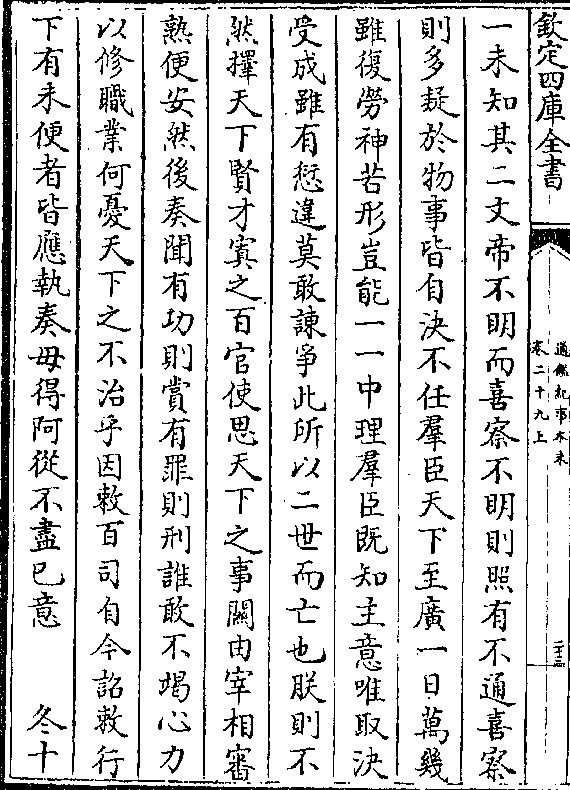 欽定四庫全書
通鑑紀事本末
卷二十九上
二十三
一未知其二文帝不明而喜察不明則照有不通喜察
則多疑於物事皆自決不任羣臣天下至廣一日萬幾
雖復勞神苦形豈能一一中理羣臣既知主意唯取決
受成雖有愆違莫敢諫爭此所以二世而亡也朕則不
然擇天下賢才寘之百官使思天下之事關由宰相審
熟便安然後奏聞有功則賞有罪則刑誰敢不竭心力
以修職業何憂天下之不治乎因敕百司自今詔敕行
下有未便者皆應執奏毋得阿從不盡已意　冬十